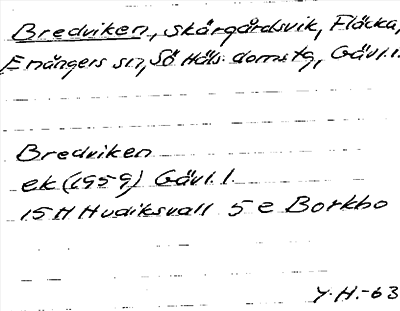 Bredviken, skärgårdsvik, Fläcka,
Enångers sn, Sö Häls. doms tg, Gävl. l.
Bredviken
ek (1959) Gävl. l.
15 H Hudiksvall 5 e Borkbo
Y. H. -63